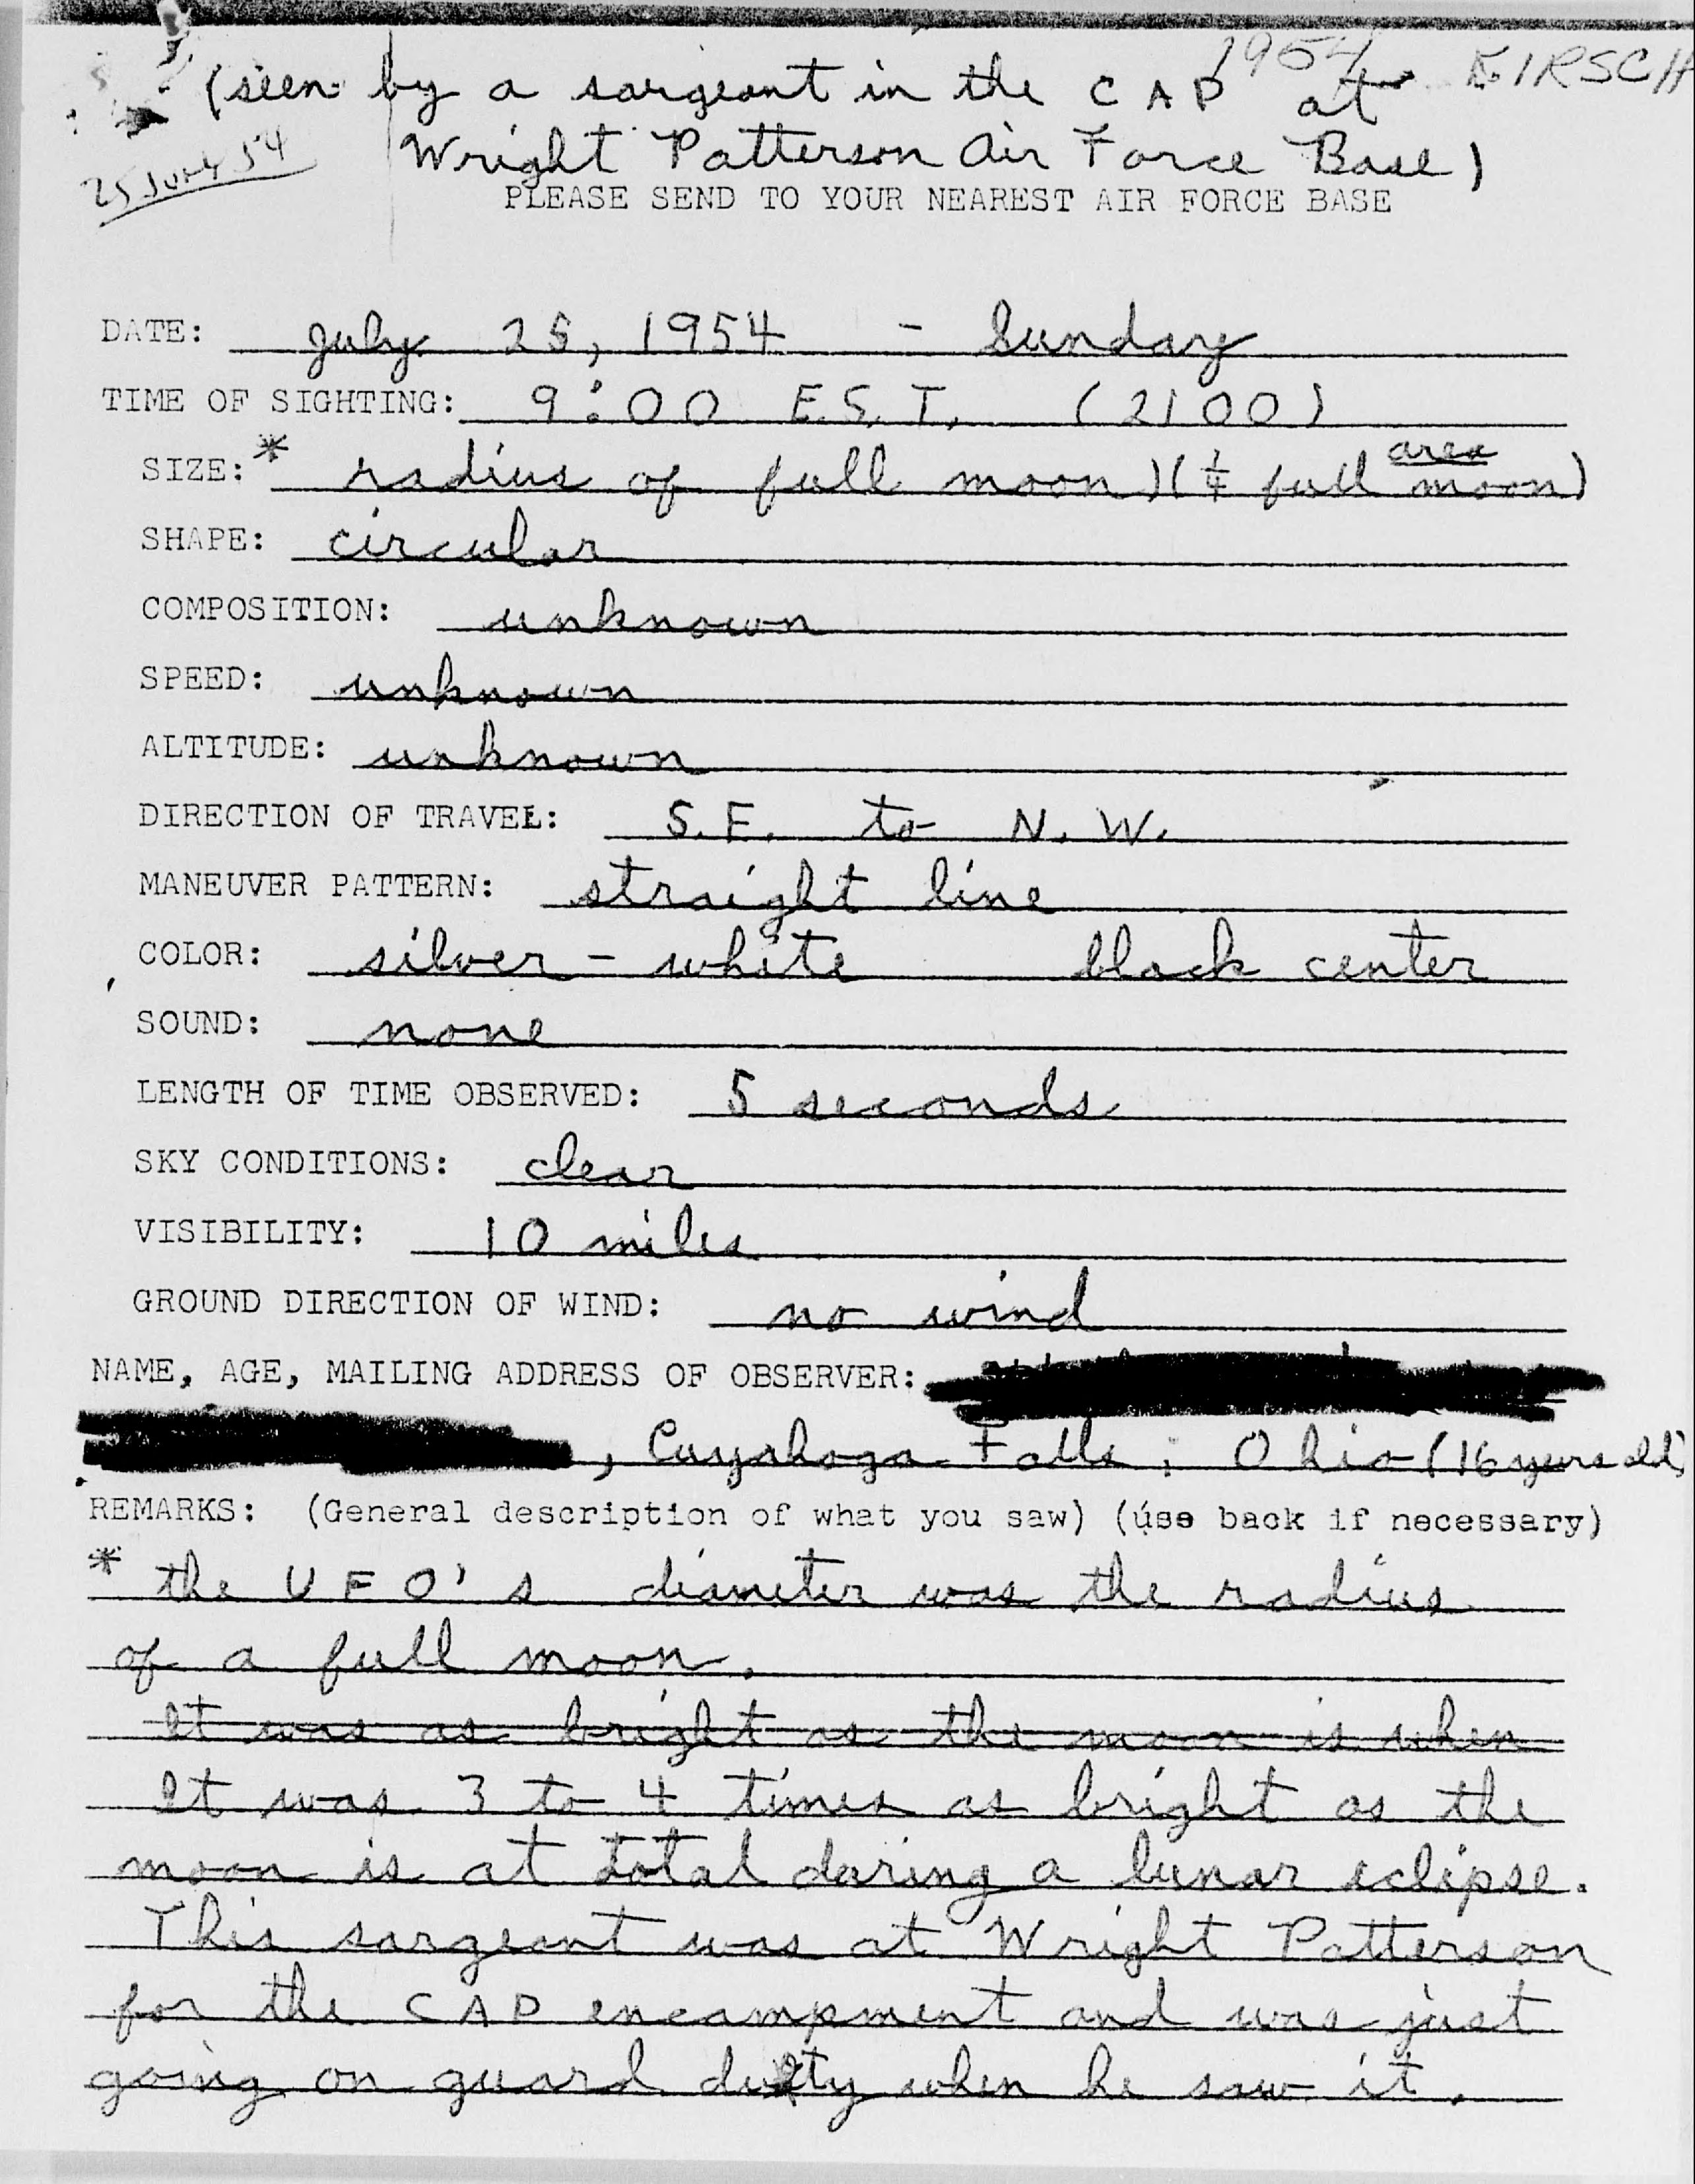 1954 KIRSCH
(seen by a sargeant in the CAP at
25 July 54
Wright Patterson Air Force Base)
PLEASE SEND TO YOUR NEAREST AIR FORCE BASE
DATE: July 25, 1954 - Sunday
TIME OF SIGHTING: 9:00 E.S.T. (2100)
SIZE:* radius of full moon)(¼ full moon area)
SHAPE: circular
COMPOSITION: unknown
SPEED: unknown
ALTITUDE: unknown
DIRECTION OF TRAVEL: S.E. to N.W.
MANEUVER PATTERN: straight line
COLOR: silver - white black center
SOUND: none
LENGTH OF TIME OBSERVED: 5 seconds
SKY CONDITIONS: clear
VISIBILITY: 10 miles
GROUND DIRECTION OF WIND: no wind
NAME, AGE, MAILING ADDRESS OF OBSERVER:
, Cuyahoga Falls, Ohio (16 years old)
REMARKS: (General description of what you saw) (use back if necessary)
* the UFO's diameter was the radius
of a full moon.
It was as bright as the moon is when
It was 3 to 4 times as bright as the
moon is at total during a lunar eclipse.
This sargeant was at Wright Patterson
for the CAP encampment and was just
going on guard duty when he saw it.